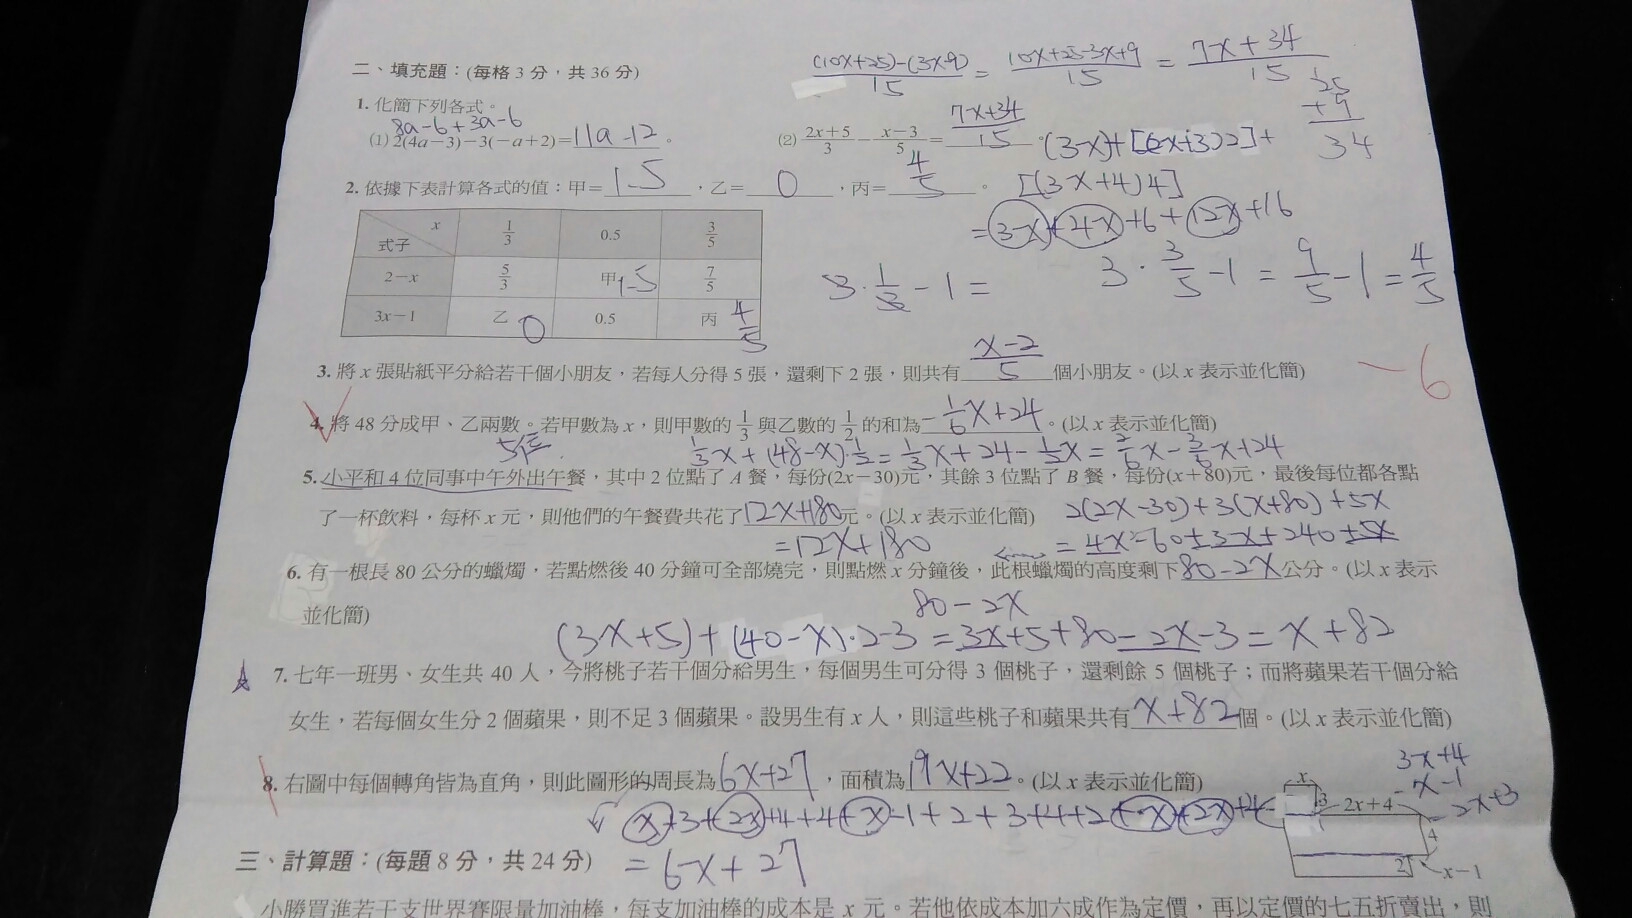 (10x+25)-(3x-9)/15 = 10x+25-3x+9/15 = 7x+34/15
二、填充題：(每格 3 分，共 36 分)
25
+9
34
1. 化簡下列各式。
8a-6+3a-6
(1) 2(4a－3)－3(－a＋2)=11a-12。
(2) 2x+5/3 － x－3/5 = 7x+34/15。
(3-x)+[(2x+3)2]+
[(3-x+4)4]
2. 依據下表計算各式的值：甲=1.5，乙=0，丙=4/5。
=3-x+4-x+6+12x+16
式子 x 1/3 0.5 3/5
2－x 5/3 甲1.5 7/5
3x－1 乙 0 0.5 丙 4/5
3·1/3-1=
3·3/5-1=9/5-1=4/5
3. 將 x 張貼紙平分給若干個小朋友，若每人分得 5 張，還剩下 2 張，則共有x-2/5個小朋友。(以 x 表示並化簡)
-6
4. 將 48 分成甲、乙兩數。若甲數為 x，則甲數的 1/3 與乙數的 1/2 的和為-1/6x+24。(以 x 表示並化簡)
5位
1/3x+(48-x)·1/2=1/3x+24-1/2x=2/6x-3/6x+24
5. 小平和 4 位同事中午外出午餐，其中 2 位點了 A 餐，每份(2x－30)元，其餘 3 位點了 B 餐，每份(x＋80)元，最後每位都各點
了一杯飲料，每杯 x 元，則他們的午餐費共花了12x+180元。(以 x 表示並化簡)
2(2x-30)+3(x+80)+5x
=4x-60+3x+240+5x
=12x+180
6. 有一根長 80 公分的蠟燭，若點燃後 40 分鐘可全部燒完，則點燃 x 分鐘後，此根蠟燭的高度剩下80-2x公分。(以 x 表示
並化簡)
80-2x
(3x+5)+(40-x)·2-3=3x+5+80-2x-3=x+82
7. 七年一班男、女生共 40 人，今將桃子若干個分給男生，每個男生可分得 3 個桃子，還剩餘 5 個桃子；而將蘋果若干個分給
女生，若每個女生分 2 個蘋果，則不足 3 個蘋果。設男生有 x 人，則這些桃子和蘋果共有x+82個。(以 x 表示並化簡)
8. 右圖中每個轉角皆為直角，則此圖形的周長為6x+27，面積為19x+22。(以 x 表示並化簡)
3x+4
-x-1
2x+3
x
3
2x＋4
4
2
x－1
x+3+2x+4+4+x-1+2+3+4+2+x+2x+4
=6x+27
三、計算題：(每題 8 分，共 24 分)
小勝買進若干支世界賽限量加油棒，每支加油棒的成本是 x 元。若他依成本加六成作為定價，再以定價的七五折賣出，則